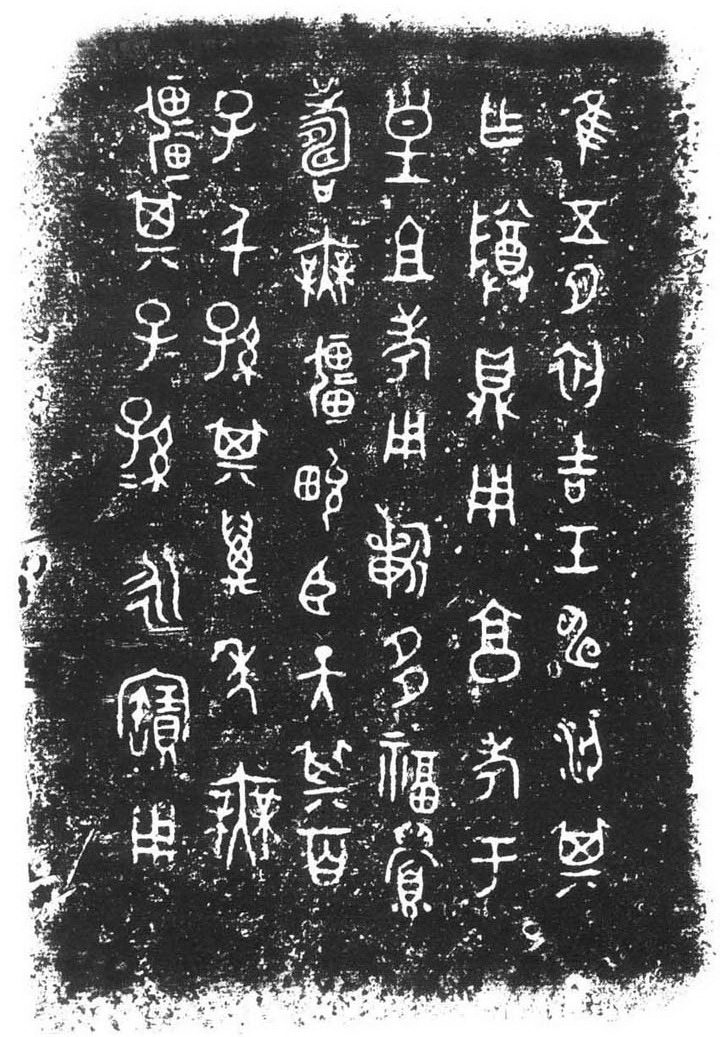 隹五月初吉壬申梁其
乍尊鼎用享孝于
皇且考用祈多福眉
壽無疆畯臣天其百
子千孫其萬年無
疆其子子孫孫永寶用